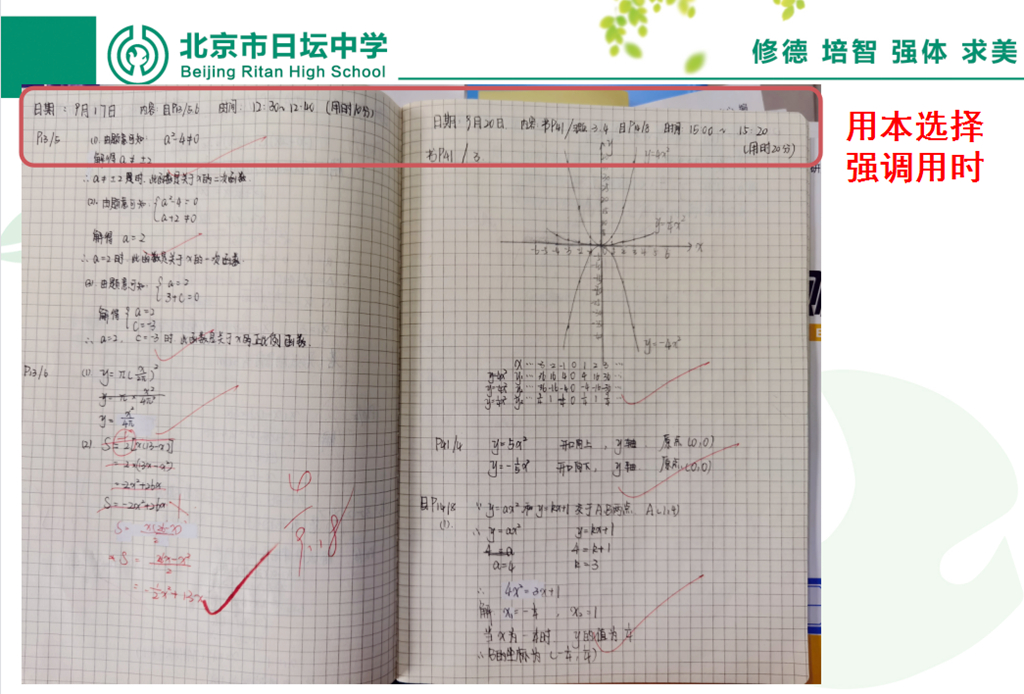 北京市日坛中学
Beijing Ritan High School
修德 培智 强体 求美
用本选择
强调用时
日期：9月17日 内容 目P13/5.6 时间：12:30~12:40 (用时10分)
P13/5 (1) 由题意可知 a²-4≠0
解得 a≠±2
∴a≠±2时，此函数是关于x的二次函数
(2) 由题意可知 {a²-4=0
a+2≠0
解得 a=2
∴a=2时，此函数是关于x的一次函数
(3) 由题意可知 {a=2
3+c=0
解得 {a=2
c=-3
∴a=2，c=-3时 此函数是关于x的正比例函数.
P13/6 (1) y=π(x/2π)²
y=π·x²/4π²
y=x²/4π
(2) S=2[x(13-x)]
=-2x²+26x
S=-2x²+26x
S=
=-½x²+13x
9.18
日期 9月20日 内容 书P41/3.4 目P14/8 时间 15:00~15:20
(用时20分)
书P41/3
y=4x²
y=¼x²
x
y=-4x²
P41/4 y=5x² 开口向上，y轴，原点(0,0)
y=-⅕x² 开口向下，y轴，原点(0,0)
目P14/8 ∵y=ax²和y=kx+1交于A.B两点，A(1,4)
(1) ∴y=ax² y=kx+1
4=a 4=k+1
a=4 k=3
∴4x²=3x+1
解 x₁=-¼，x₂=1
当x为-¼时 y的值为¼
∴B的坐标为(-¼,¼)